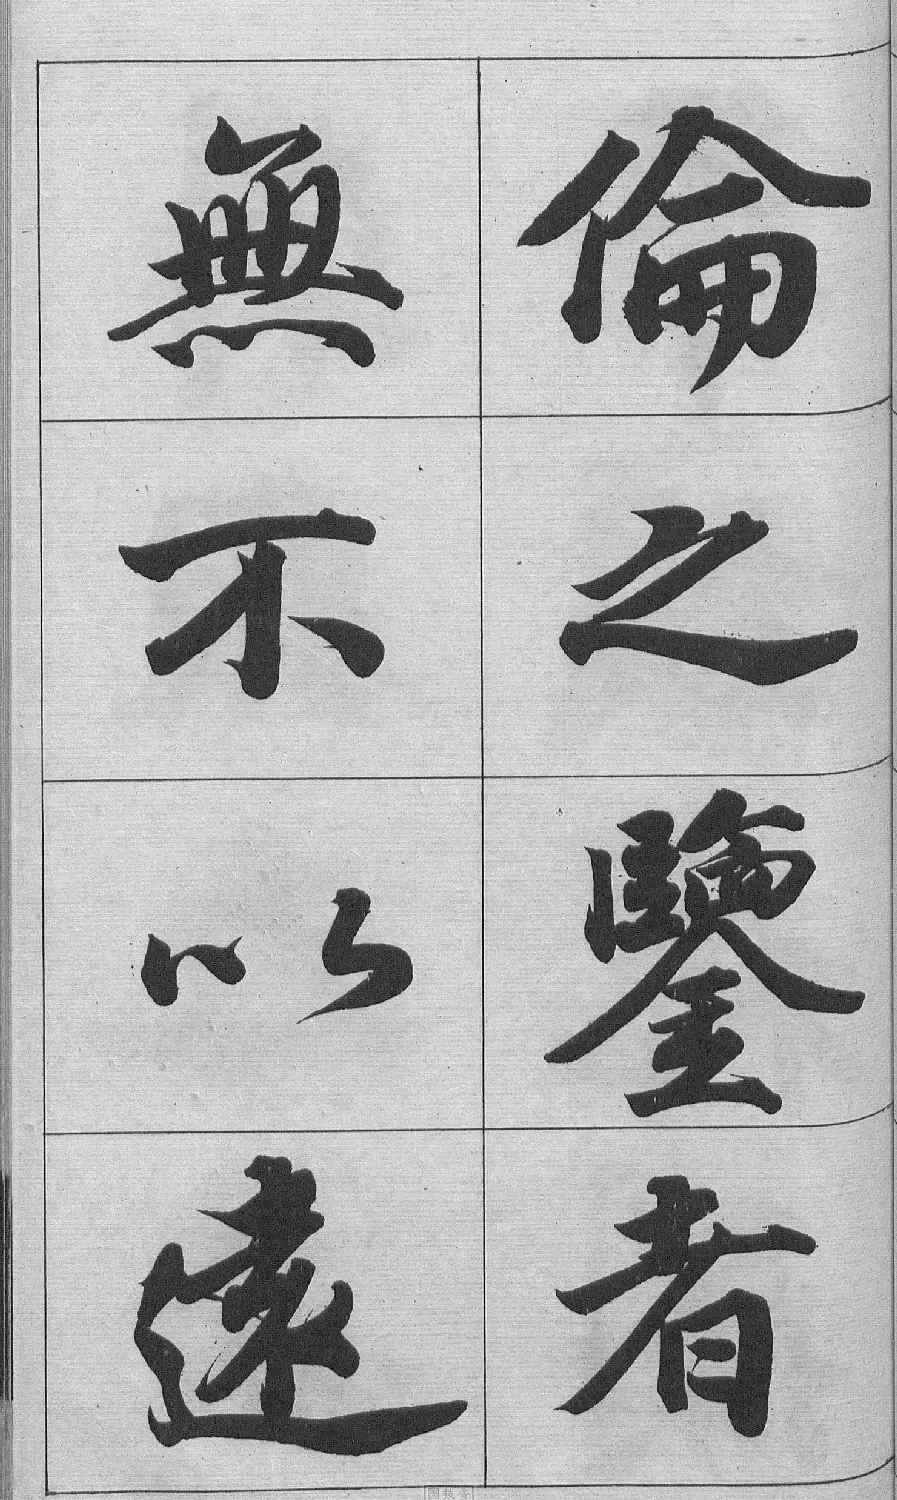 倫之鑒者
無不以遠